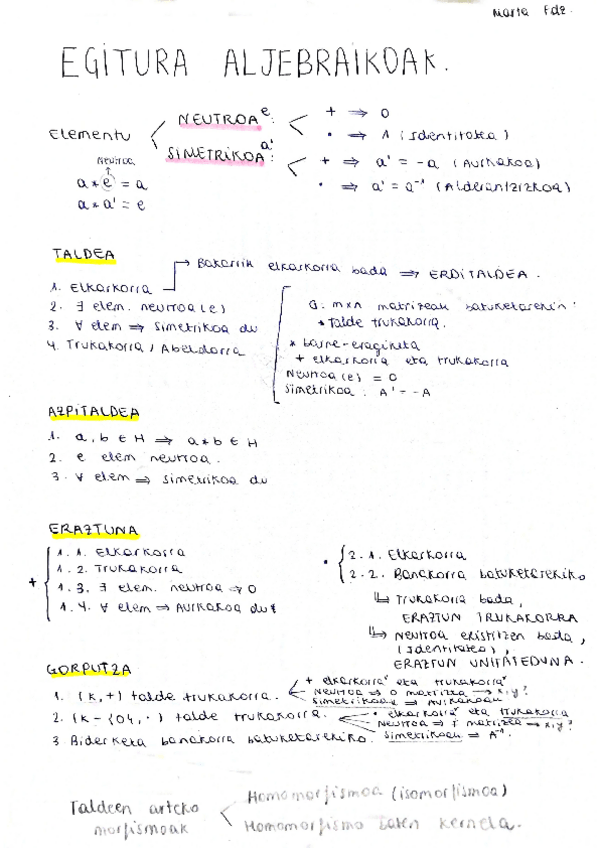 Marta Fdz.
EGITURA ALJEBRAIKOAK.
Elementu
NEUTROA e:
+ ⇒ 0
• ⇒ 1 (Identitatea)
SIMETRIKOA a':
+ ⇒ a' = -a (Aurkakoa)
• ⇒ a' = a⁻¹ (Alderantzizkoa)
neutroa
a * e = a
a * a' = e
TALDEA
→ Bakarrik elkarkorra bada ⇒ ERDITALDEA.
1. Elkarkorra
2. ∃ elem. neutroa (e)
3. ∀ elem ⇒ simetrikoa du
4. Trukakorra / Abeldarra
G: mxn matrizeak batuketarekin
* Talde trukakorra.
* barne-eragiketa
+ elkarkorra eta trukakorra
Neutroa (e) = 0
Simetrikoa: A' = -A
AZPITALDEA
1. a, b ∈ H ⇒ a * b ∈ H
2. e elem neutroa.
3. ∀ elem ⇒ simetrikoa du
ERAZTUNA
+
1.1. Elkarkorra
1.2. Trukakorra
1.3. ∃ elem. neutroa ⇒ 0
1.4. ∀ elem ⇒ Aurkakoa du
•
2.1. Elkarkorra
2.2. Banakorra batuketarekiko
↳ Trukakorra bada,
ERAZTUN TRUKAKORRA
↳ Neutroa existitzen bada,
(Identitatea),
ERAZTUN UNITATEDUNA.
GORPUTZA
1. (K,+) talde trukakorra.
+ elkarkorra eta trukakorra
Neutroa ⇒ 0 matrizea → x,y?
Simetrikoa ⇒ Aurkakoa
2. (K-{0}, ·) talde trukakorra.
• elkarkorra eta trukakorra
Neutroa ⇒ matrizea → x,y?
Simetrikoa ⇒ A⁻¹
3 Biderketa banakorra batuketarekiko.
Taldeen arteko
morfismoak
Homomorfismoa (isomorfismoa)
Homomorfismo baten kernela.